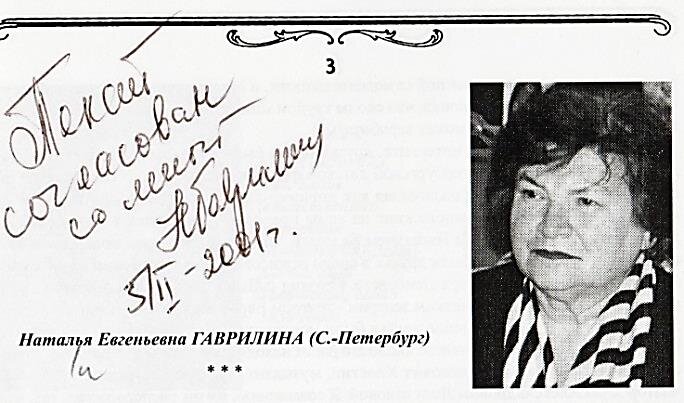 3
Текст
согласован
со мной
НГаврилина
5/II-2001г.
Наталья Евгеньевна ГАВРИЛИНА (С.-Петербург)
* * *